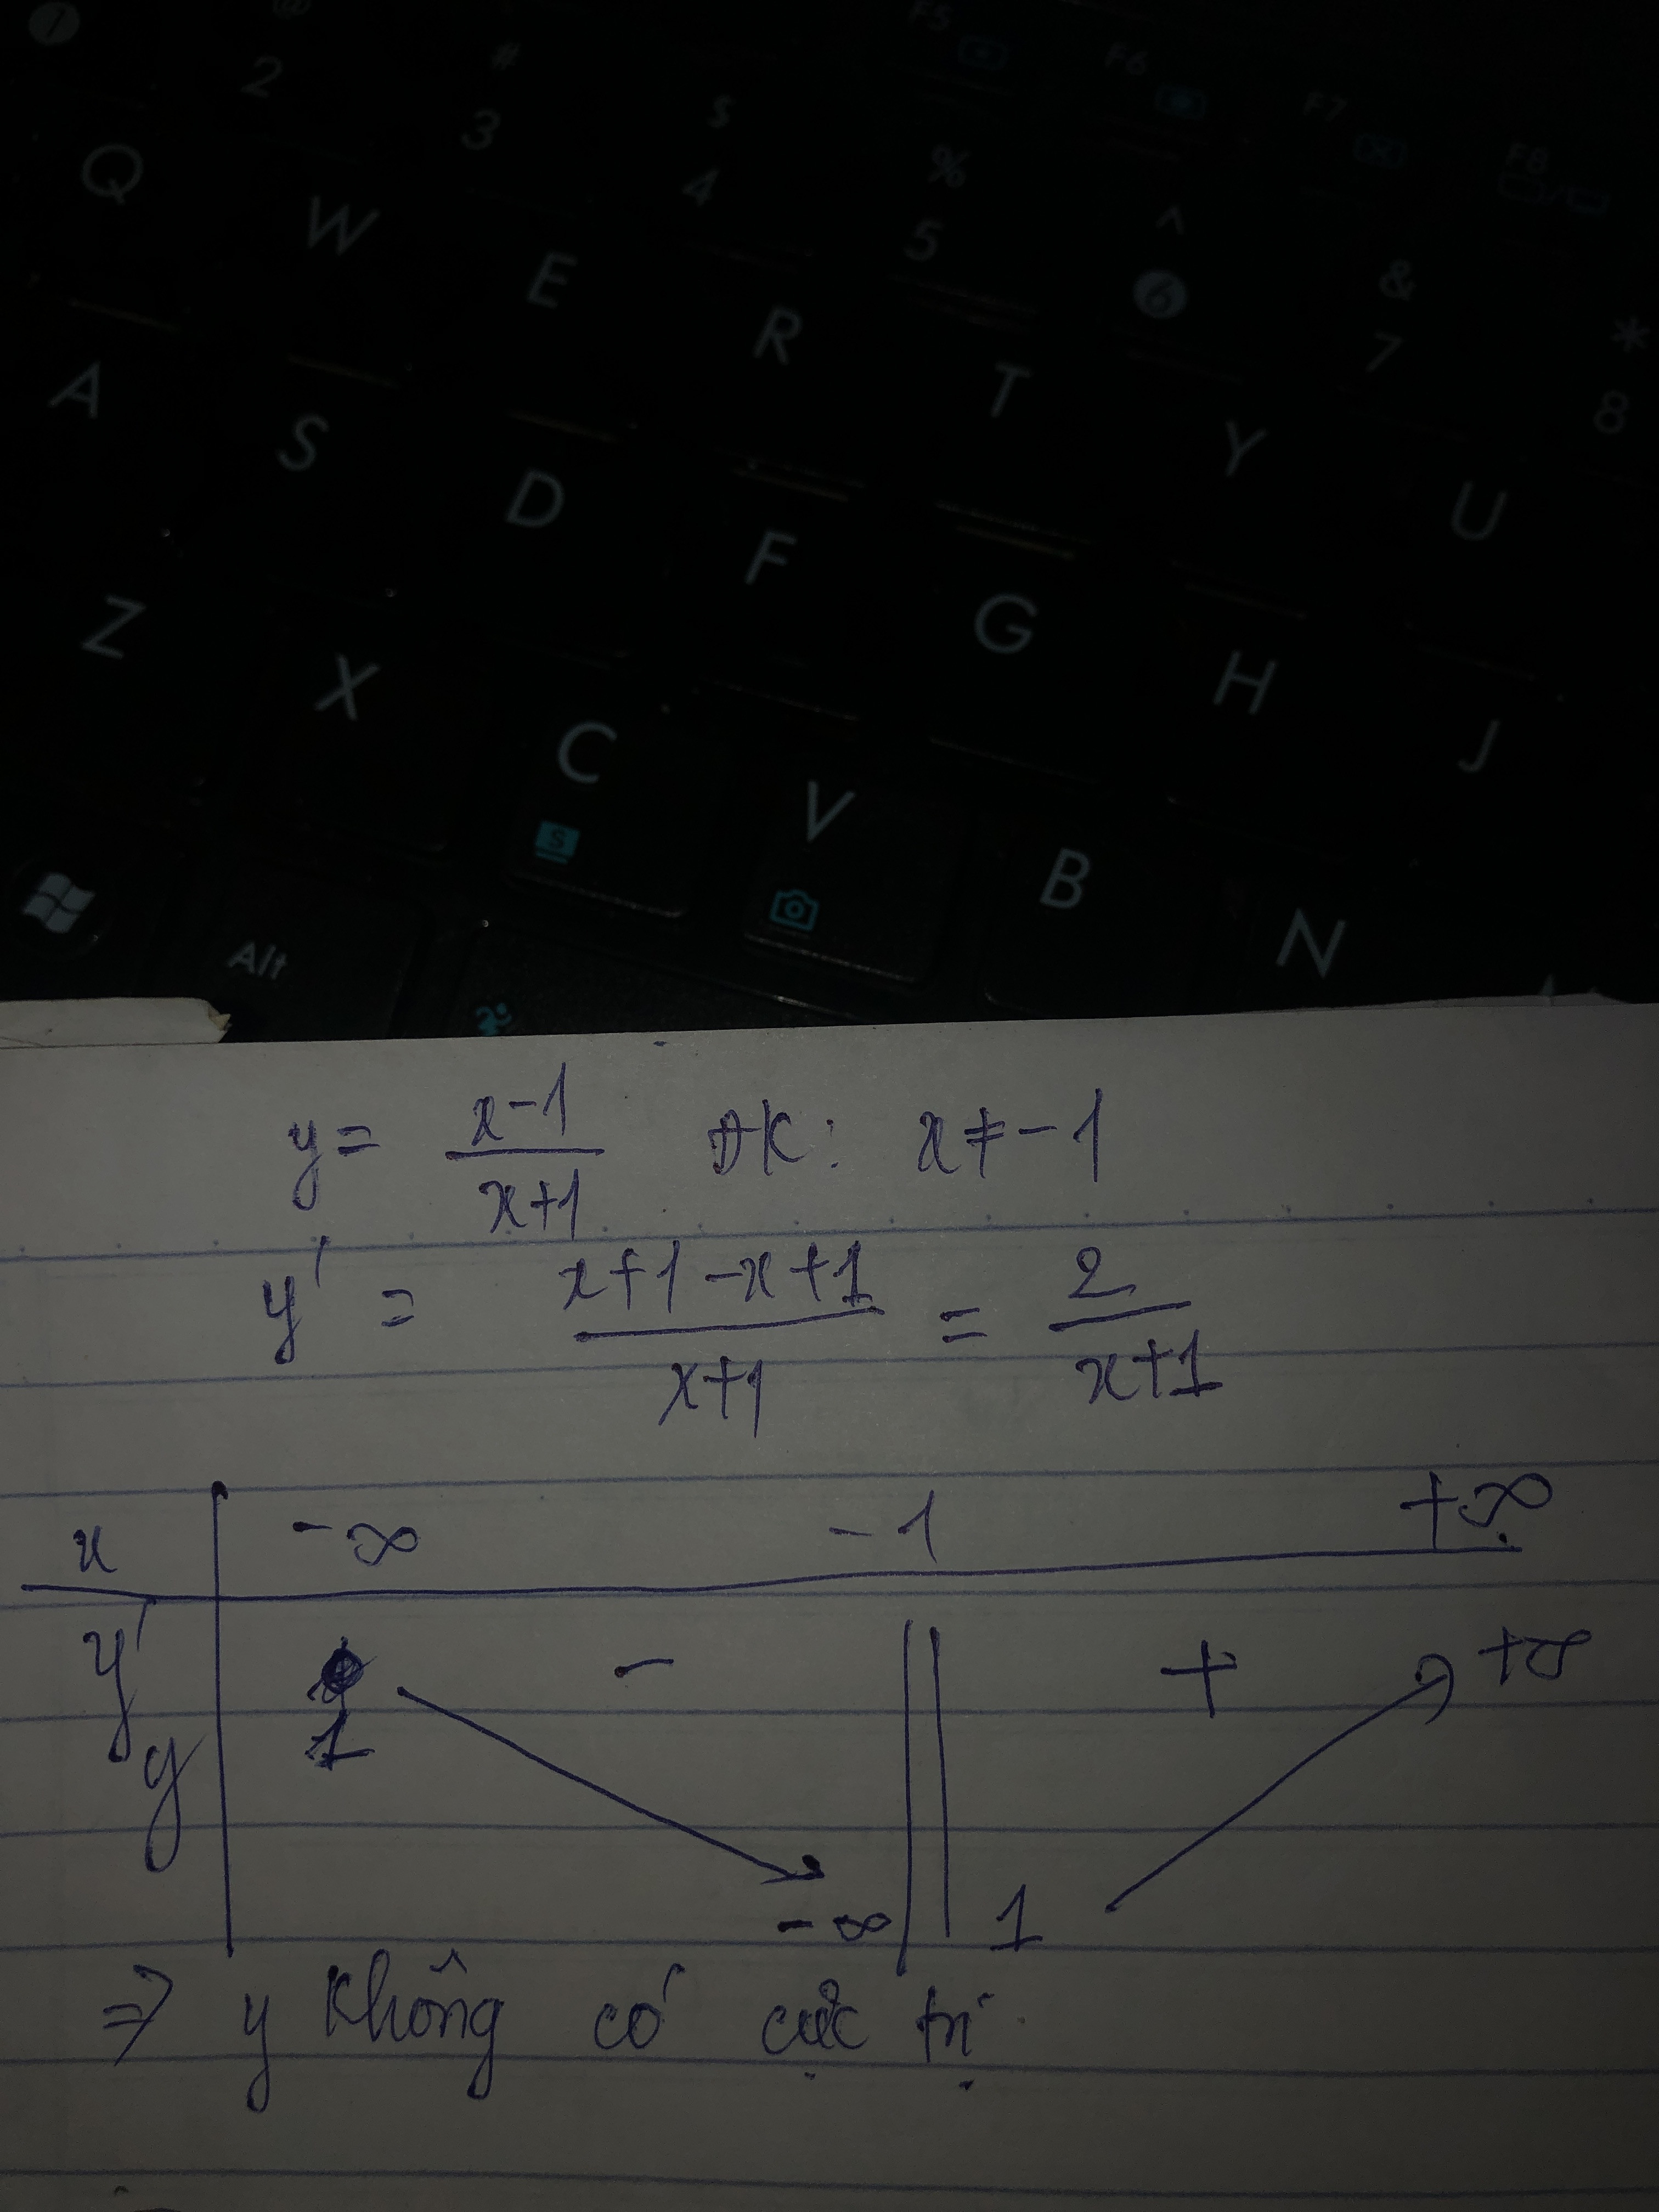 F5 F6 F7 F8
1 @ 2 # 3 $ 4 % 5 ^ 6 & 7 * 8
Q W E R T Y U
A S D F G H J
Z X C V B N
S
Alt
y = x-1 / x+1 ĐK: x ≠ -1
y' = x+1-x+1 / x+1 = 2 / x+1
x -∞ -1 +∞
y' - || + +∞
y 1 -∞ || 1
=> y không có cực trị